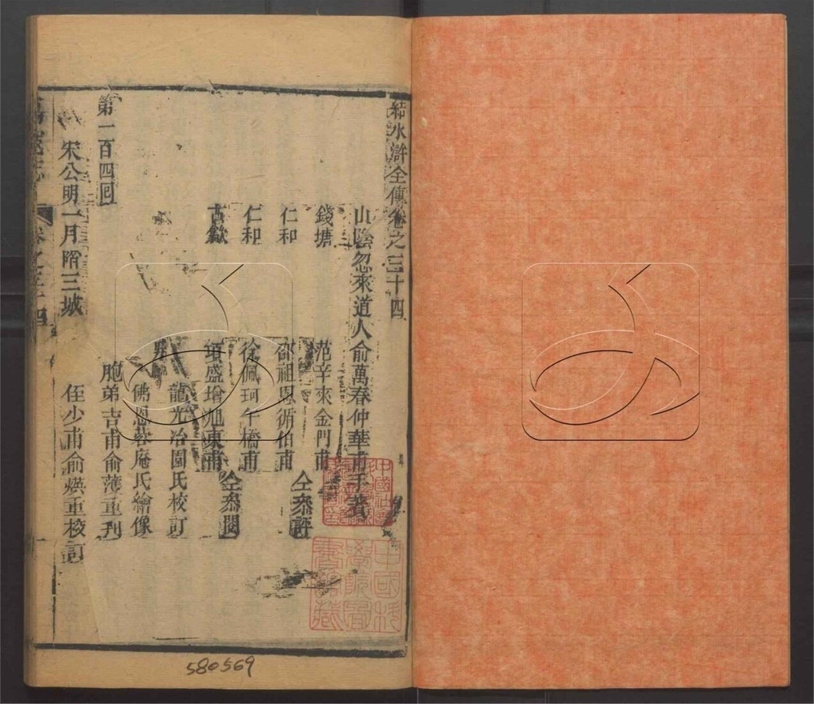 結水滸全傳卷之三十四
山陰忽來道人俞萬春仲華甫手著
錢塘 范辛來金門甫
仁和 邵祖恩循伯甫 仝參評
仁和 徐佩珂午橋甫
古歙 項盛瑜旭東甫 仝參閱
龍光冶園氏校訂
佛恩 菴氏繪像
胞弟吉甫俞 重刋
侄少甫俞煐重校訂
第一百四回
宋公明一月陷三城
卷之三十四
一
580569